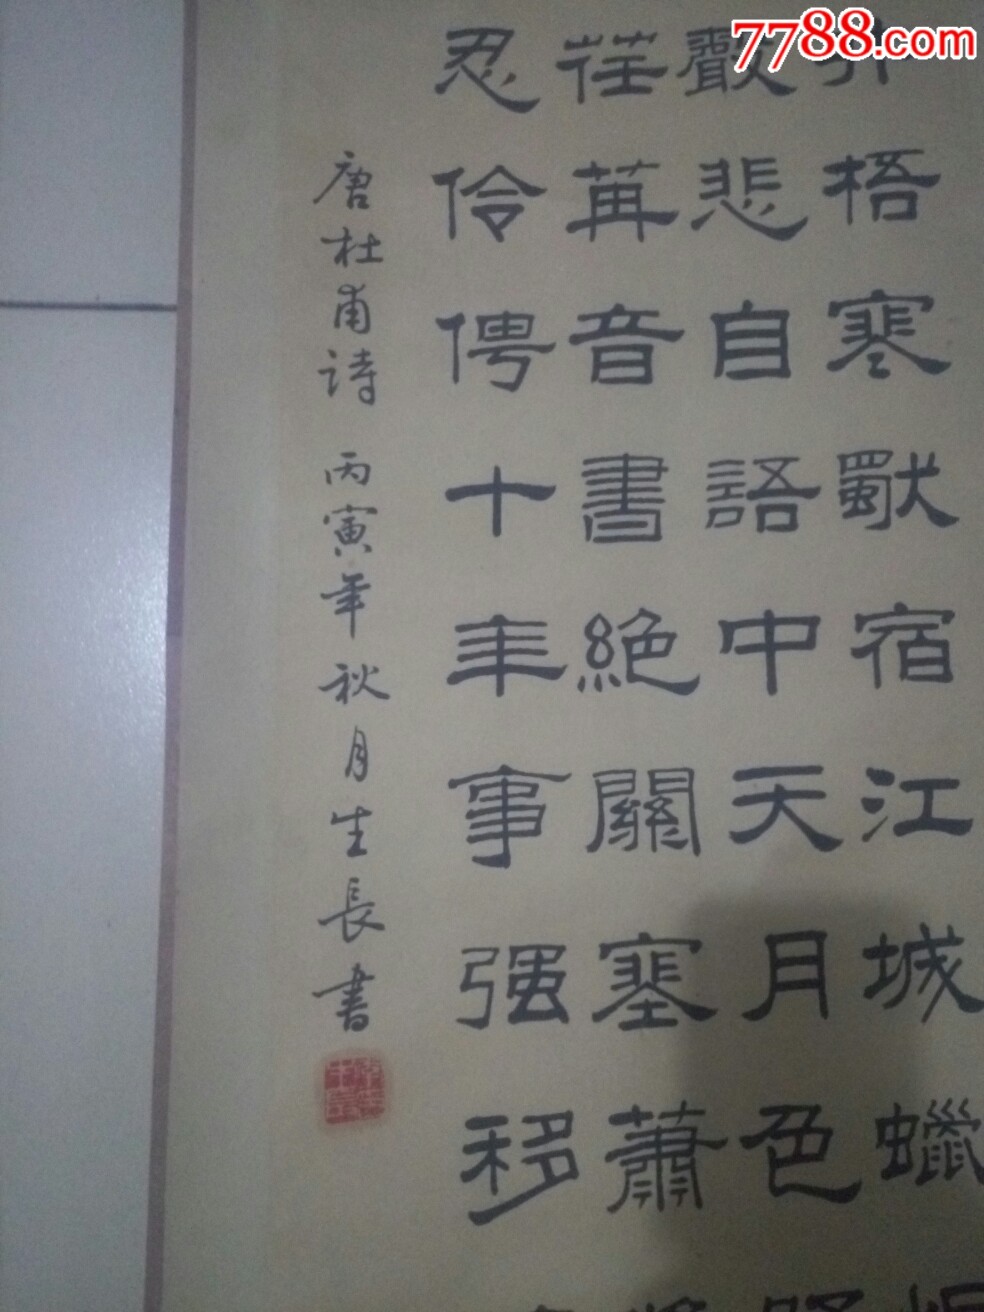 7788.com
井梧寒獨宿江城蠟
聲悲自語中天月色
荏苒音書絕關塞蕭
忍伶俜十年事强移
唐杜甫詩 丙寅年秋月生長書